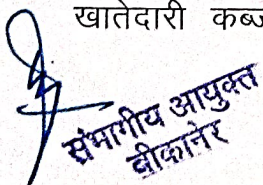 खातेदारी कब्ज
संभागीय आयुक्त
बीकानेर